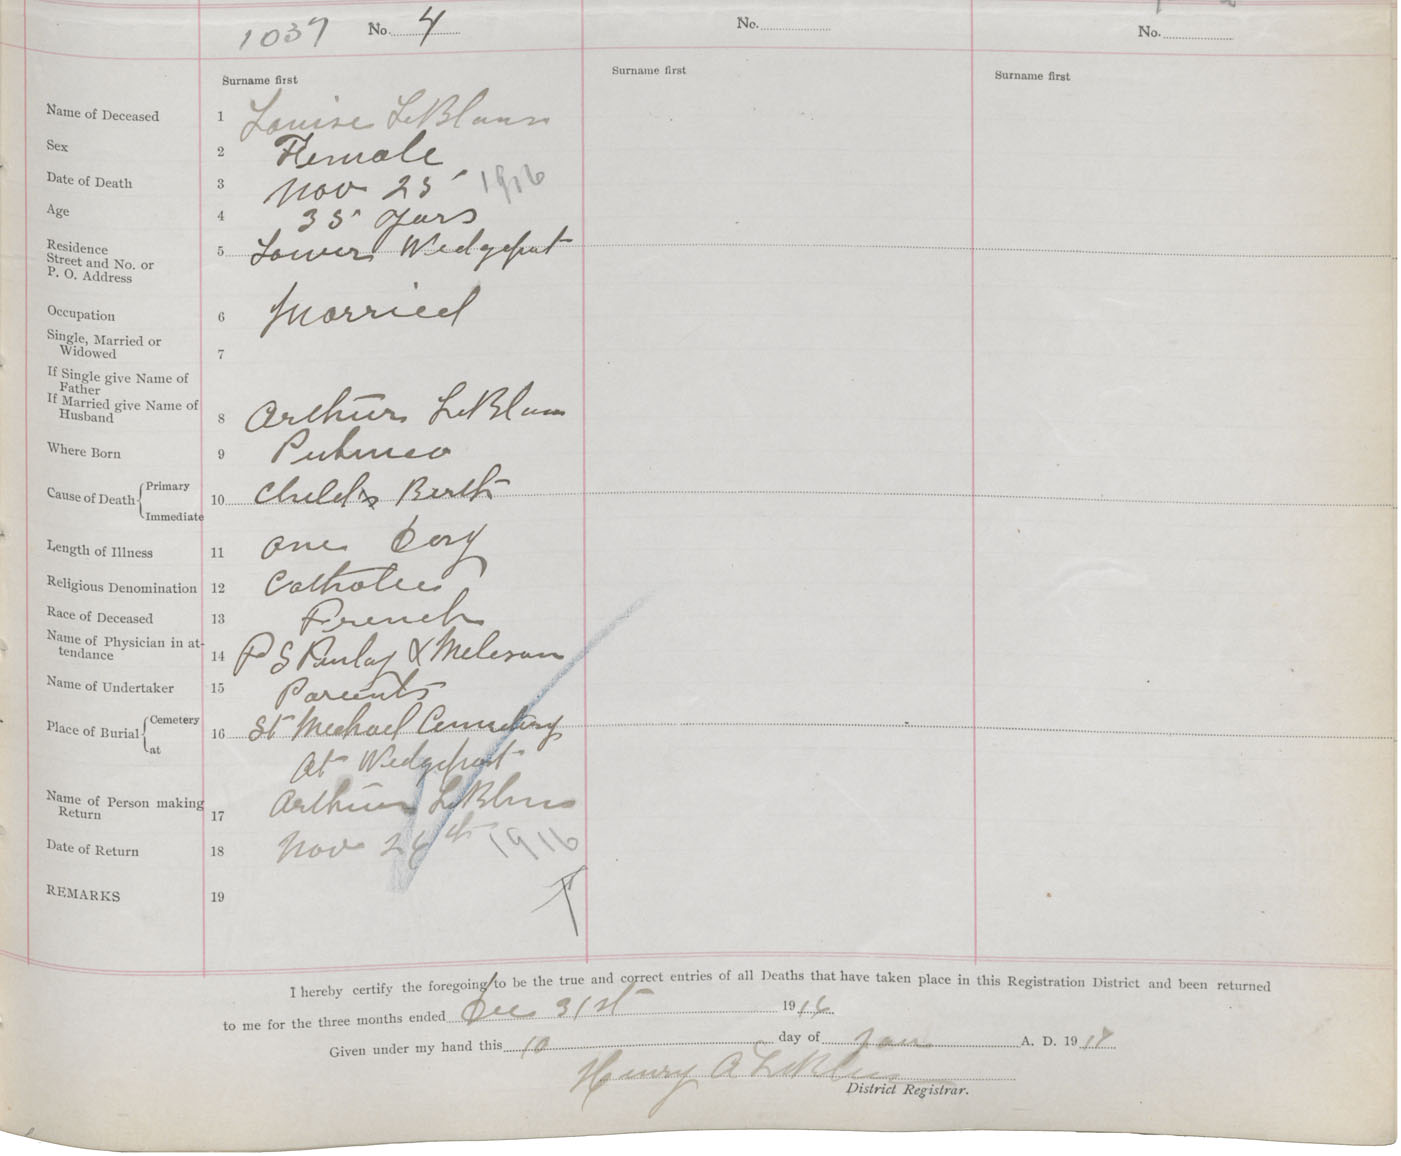 1037 No. 4 No. No.
Surname first Surname first Surname first
Name of Deceased 1 Louise LeBlanc
Sex 2 Female
Date of Death 3 Nov 25 1916
Age 4 35 years
Residence
Street and No. or
P. O. Address 5 Lower Wedgeport
Occupation 6 Married
Single, Married or
Widowed 7
If Single give Name of
Father
If Married give Name of
Husband 8 Arthur LeBlanc
Where Born 9 Pubnico
Cause of Death Primary
Immediate 10 Childs Birth
Length of Illness 11 one Day
Religious Denomination 12 Catholic
Race of Deceased 13 French
Name of Physician in at-
tendance 14 P S & Meleson
Name of Undertaker 15 Parents
Place of Burial Cemetery
at 16 St Michael Cemetery
At Wedgeport
Name of Person making
Return 17 Arthur LeBlanc
Date of Return 18 Nov 26th 1916
REMARKS 19
I hereby certify the foregoing to be the true and correct entries of all Deaths that have taken place in this Registration District and been returned
to me for the three months ended Dec 31st 1916
Given under my hand this 10 day of Jan A. D. 1917
Henry A LeBlanc
District Registrar.